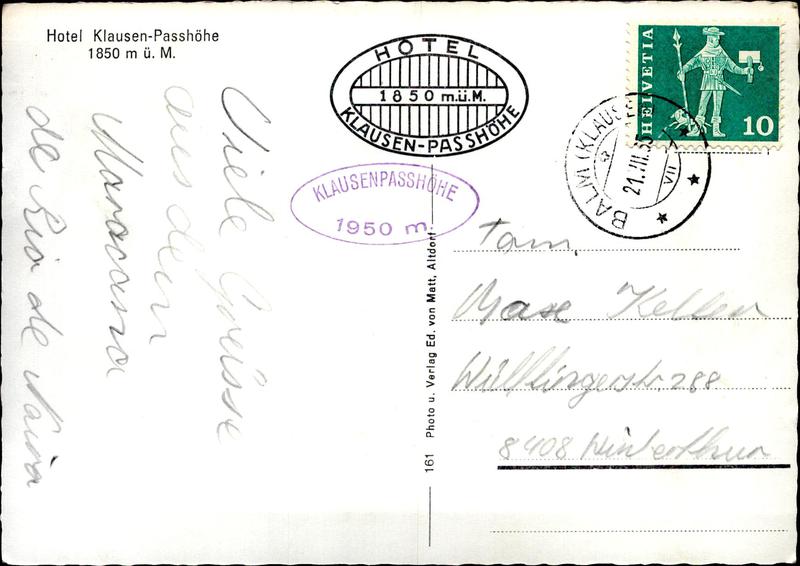 Hotel Klausen-Passhöhe
1850 m ü. M.
HOTEL
1850 m.ü.M.
KLAUSEN-PASSHÖHE
KLAUSENPASSHÖHE
1950 m.
HELVETIA
10
BALM (KLAUSEN
21.VII.65
VII
Viele Grüsse
aus dem
Maracana
de Rio de
Fam.
Max Keller
Wülflingerstr. 288
8408 Winterthur
161 Photo u. Verlag Ed. von Matt, Altdorf